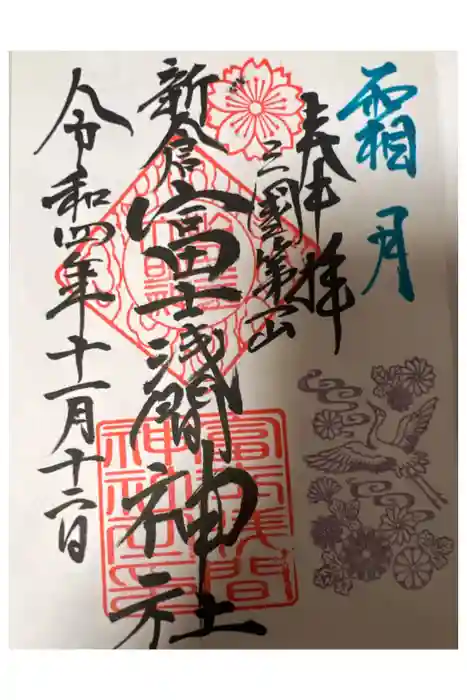 霜月
奉拝
三國第一山
新倉富士浅間神社
令和四年十一月十二日
富士浅間
神社之印